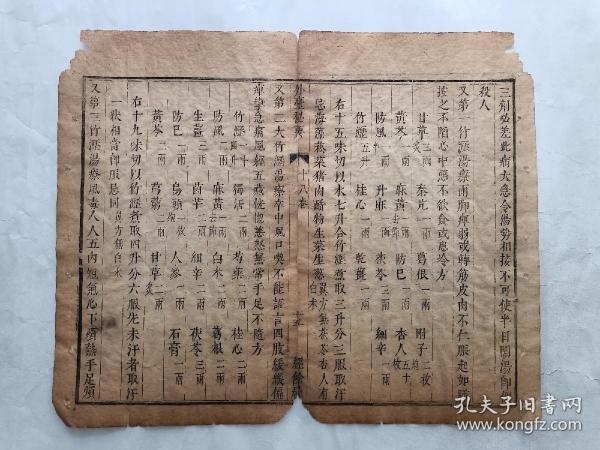 三劑必差此病大急令湯勢相接不可使半日闕湯即
殺人
又第一竹瀝湯療兩脚痺弱或轉筋皮肉不仁腹起如腫
按之不陷心中惡不欲食或患冷方
甘草二兩 秦艽一兩 葛根一兩 附子二枚
黃芩一兩 麻黃去節 防巳一兩 杏人五十枚
防風一兩 升麻一兩 茯苓三兩 細辛一兩
竹瀝五升 桂心一兩 乾薑一兩
右十五味切以水七升合竹瀝煮取三升分三服取汗
忌海藻菘菜豬肉酢物生菜生葱
外臺秘要 十八卷 經餘居
又第二大竹瀝湯療卒中風口噤不能語言四肢緩縱偏
痺攣急痛風經五臟恍惚恚怒無常手足不隨方
竹瀝 獨活二兩 芍藥二兩 桂心二兩
防風二兩 麻黃去節 白朮二兩 葛根二兩
生薑三兩 茵芋二兩 細辛二兩 茯苓三兩
防巳一兩 烏頭一枚 人參一兩 石膏一兩
黃芩二兩 芎藭二兩 甘草二兩炙
右十九味切以竹瀝煮取四升分六服先未汗者取汗
一狀相當即服忌同
又第三竹瀝湯療風毒入人五內短氣心下煩熱手足煩
孔夫子旧书网
www.kongfz.com